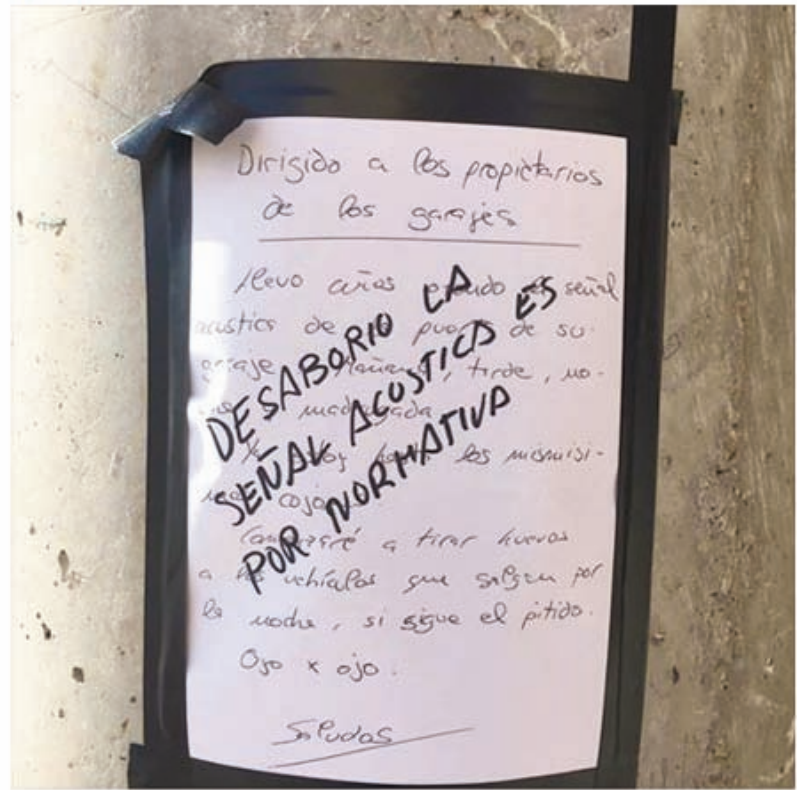 Dirigido a los propietarios
de los garajes
llevo años la señal
acustica de puerta de su
garaje mañana, tarde, no-
madrugada
los mismisi-
mos cojo
Comenzaré a tirar huevos
a los vehículos que salgan por
la noche, si sigue el pitido.
Ojo x ojo.
Saludos
DESABORIO LA
SEÑAL ACUSTICA ES
POR NORMATIVA